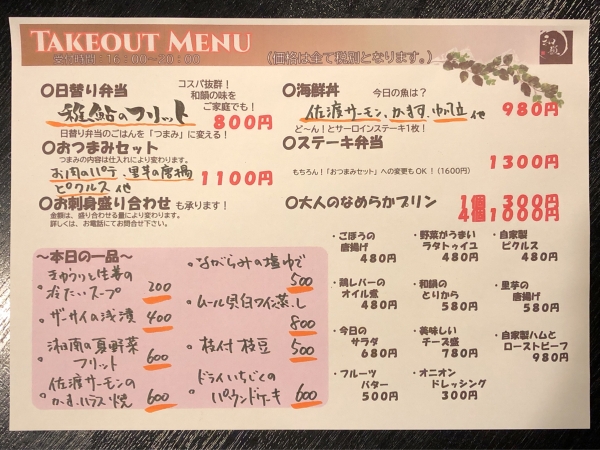 TAKEOUT MENU
受付時間:16:00~20:00
(価格は全て税別となります。)
和蔵
○日替り弁当
コスパ抜群!
和韻の味を
ご家庭でも!
稚鮎のフリット
800円
日替り弁当のごはんを「つまみ」に変える!
○おつまみセット
つまみの内容は仕入れにより変わります。
お肉のパテ、里芋の唐揚
ピクルス 他
1100円
○お刺身盛り合わせ も承ります!
金額は、盛り合わせる量により変わります。
詳しくは、お電話にてお問合せ下さい。
○海鮮丼
今日の魚は?
佐渡サーモン、かます、帆立 他
980円
ど~ん!とサーロインステーキ1枚!
○ステーキ弁当
1300円
もちろん!「おつまみセット」への変更もOK!(1600円)
○大人のなめらかプリン
1個 300円
4個1000円
~本日の一品~
きゅうりと生姜の
冷たいスープ 200
・ザーサイの浅漬 400
・湘南の夏野菜
フリット 600
佐渡サーモンの
かま、ハラス焼 600
・ながらみの塩ゆで
500
・ムール貝白ワイン蒸し
800
・枝付 枝豆 500
・ドライいちじくの
パウンドケーキ 600
・ごぼうの
唐揚げ
480円
・野菜がうまい
ラタトゥイユ
480円
・自家製
ピクルス
480円
・鶏レバーの
オイル煮
480円
・和韻の
とりから
580円
・里芋の
唐揚げ
580円
・今日の
サラダ
680円
・美味しい
チーズ盛
780円
・自家製ハムと
ローストビーフ
980円
・フルーツ
バター
500円
・オニオン
ドレッシング
300円